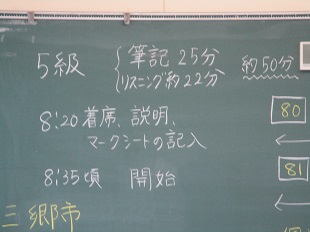 5級 筆記 25分
リスニング約22分
約50分
8:20 着席、説明、
マークシートの記入
80
←
81
←
8:35頃 開始
三郷市